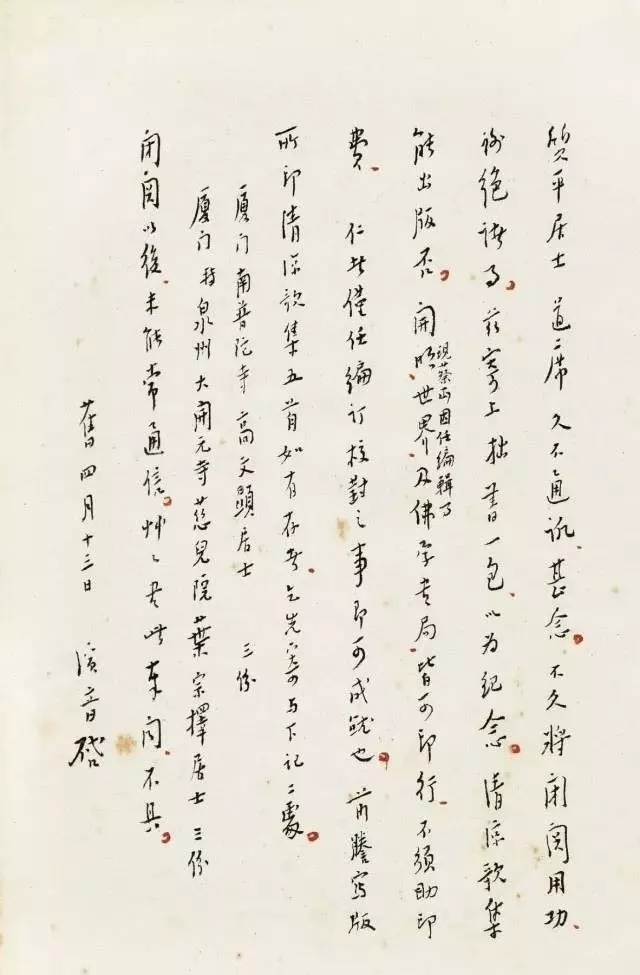 質平居士 道席 久不通訊、甚念。不久將閉関用功、
謝絕諸事。茲寄上拙書一包、以为紀念。清涼歌集
能出版否。開明、世界、及佛学書局、皆可印行、不須助印
現蔡丏因任編輯事
費、 仁者僅任編訂校對之事即可成就也。前謄寫版
所印清涼歌集五首如有存者、乞先寄与下記二處。
廈门南普陀寺 高文顯居士 三份
廈门转泉州大開元寺慈兒院葉宗擇居士 三份
閉関以後、未能常通信。艸々書此奉聞、不具。
舊四月十三日 演音啓